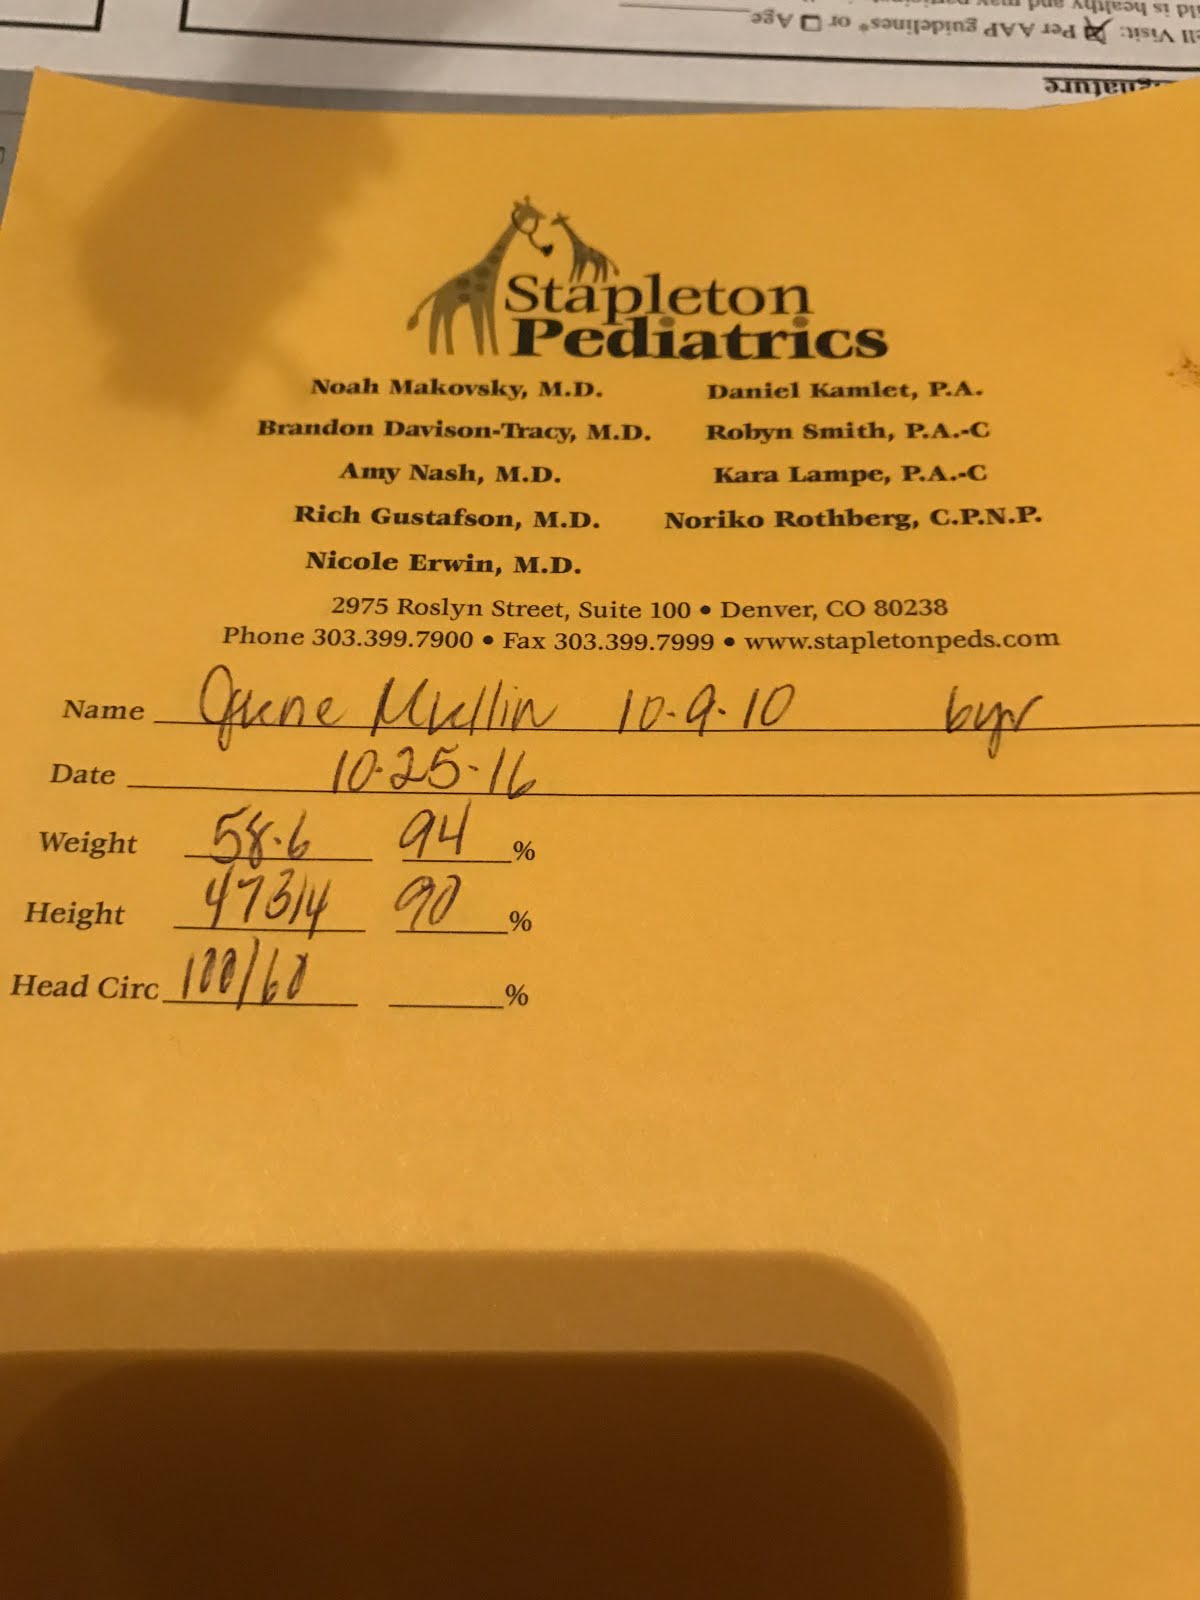 ld is healthy and may
ell Visit: Per AAP guidelines* or Age
Signature
Stapleton
Pediatrics
Noah Makovsky, M.D. Daniel Kamlet, P.A.
Brandon Davison-Tracy, M.D. Robyn Smith, P.A.-C
Amy Nash, M.D. Kara Lampe, P.A.-C
Rich Gustafson, M.D. Noriko Rothberg, C.P.N.P.
Nicole Erwin, M.D.
2975 Roslyn Street, Suite 100 • Denver, CO 80238
Phone 303.399.7900 • Fax 303.399.7999 • www.stapletonpeds.com
Name Mullin 10-9-10 6yr
Date 10-25-16
Weight 58.6 94 %
Height 47 3/4 90 %
Head Circ 100/60 %